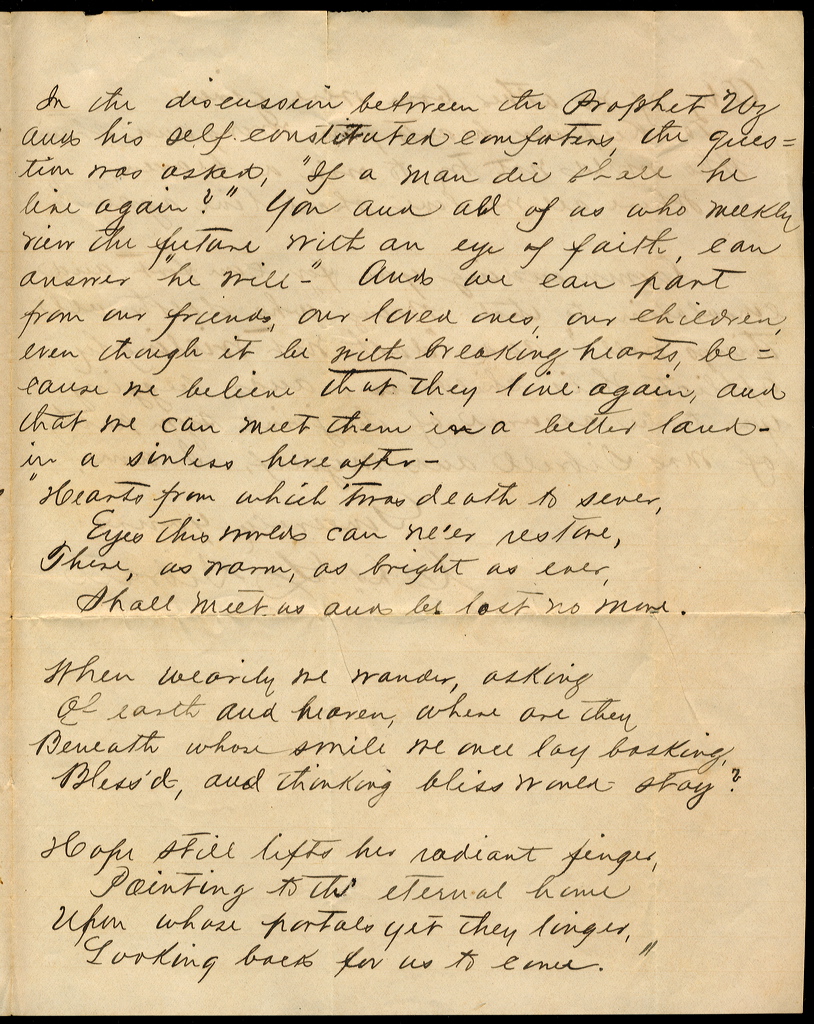 In the discussion between the Prophet Uz
and his self constituted comforters, the ques=
tion was asked, "If a man die shall he
live again?" You and all of us who meekly
view the future with an eye of faith, can
answer "he will-" And we can part
from our friends, our loved ones, our children,
even though it be with breaking hearts, be=
cause we believe that they live again, and
that we can meet them in a better land-
in a sinless hereafter-
"Hearts from which 'twas death to sever,
Eyes this world can ne'er restore,
There, as warm, as bright as ever,
Shall meet us and be lost no more.
When wearily we wander, asking
Of earth and heaven, where are they
Beneath whose smile we once lay basking,
Bless'd, and thinking bliss would stay?
Hope still lifts her radiant finger,
Pointing to the eternal home
Upon whose portals yet they linger,
Looking back for us to come."